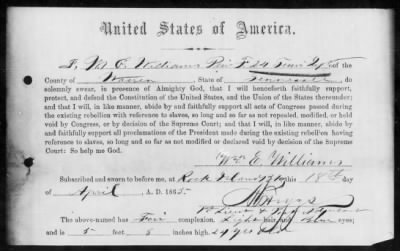 United States of America.
I, Wm E. Williams Priv F 24 Tenn of the
County of Warren, State of Tennessee, do
solemnly swear, in presence of Almighty God, that I will henceforth faithfully support,
protect, and defend the Constitution of the United States, and the Union of the States thereunder;
and that I will, in like manner, abide by and faithfully support all acts of Congress passed during
the existing rebellion with reference to slaves, so long and so far as not repealed, modified, or held
void by Congress, or by decision of the Supreme Court; and that I will, in like manner, abide by
and faithfully support all proclamations of the President made during the existing rebellion having
reference to slaves, so long and so far as not modified or declared void by decision of the Supreme
Court: So help me God.
Wm E Williams
Subscribed and sworn to before me, at Rock Island this 18th
day of April, A. D. 1865
The above-named has Fair complexion, Light hair, and Blue eyes;
and is 5 feet 8 inches high. 24 yrs